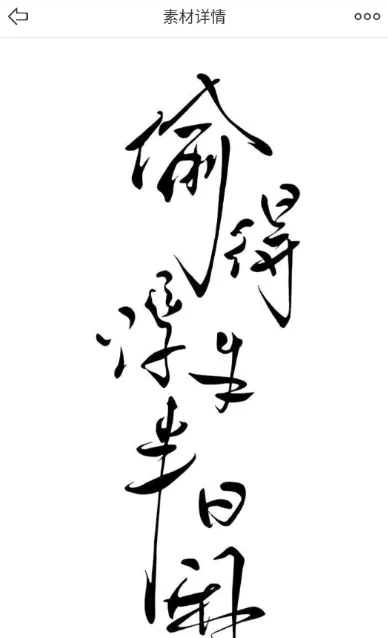 素材详情
偷得
浮生
半日闲